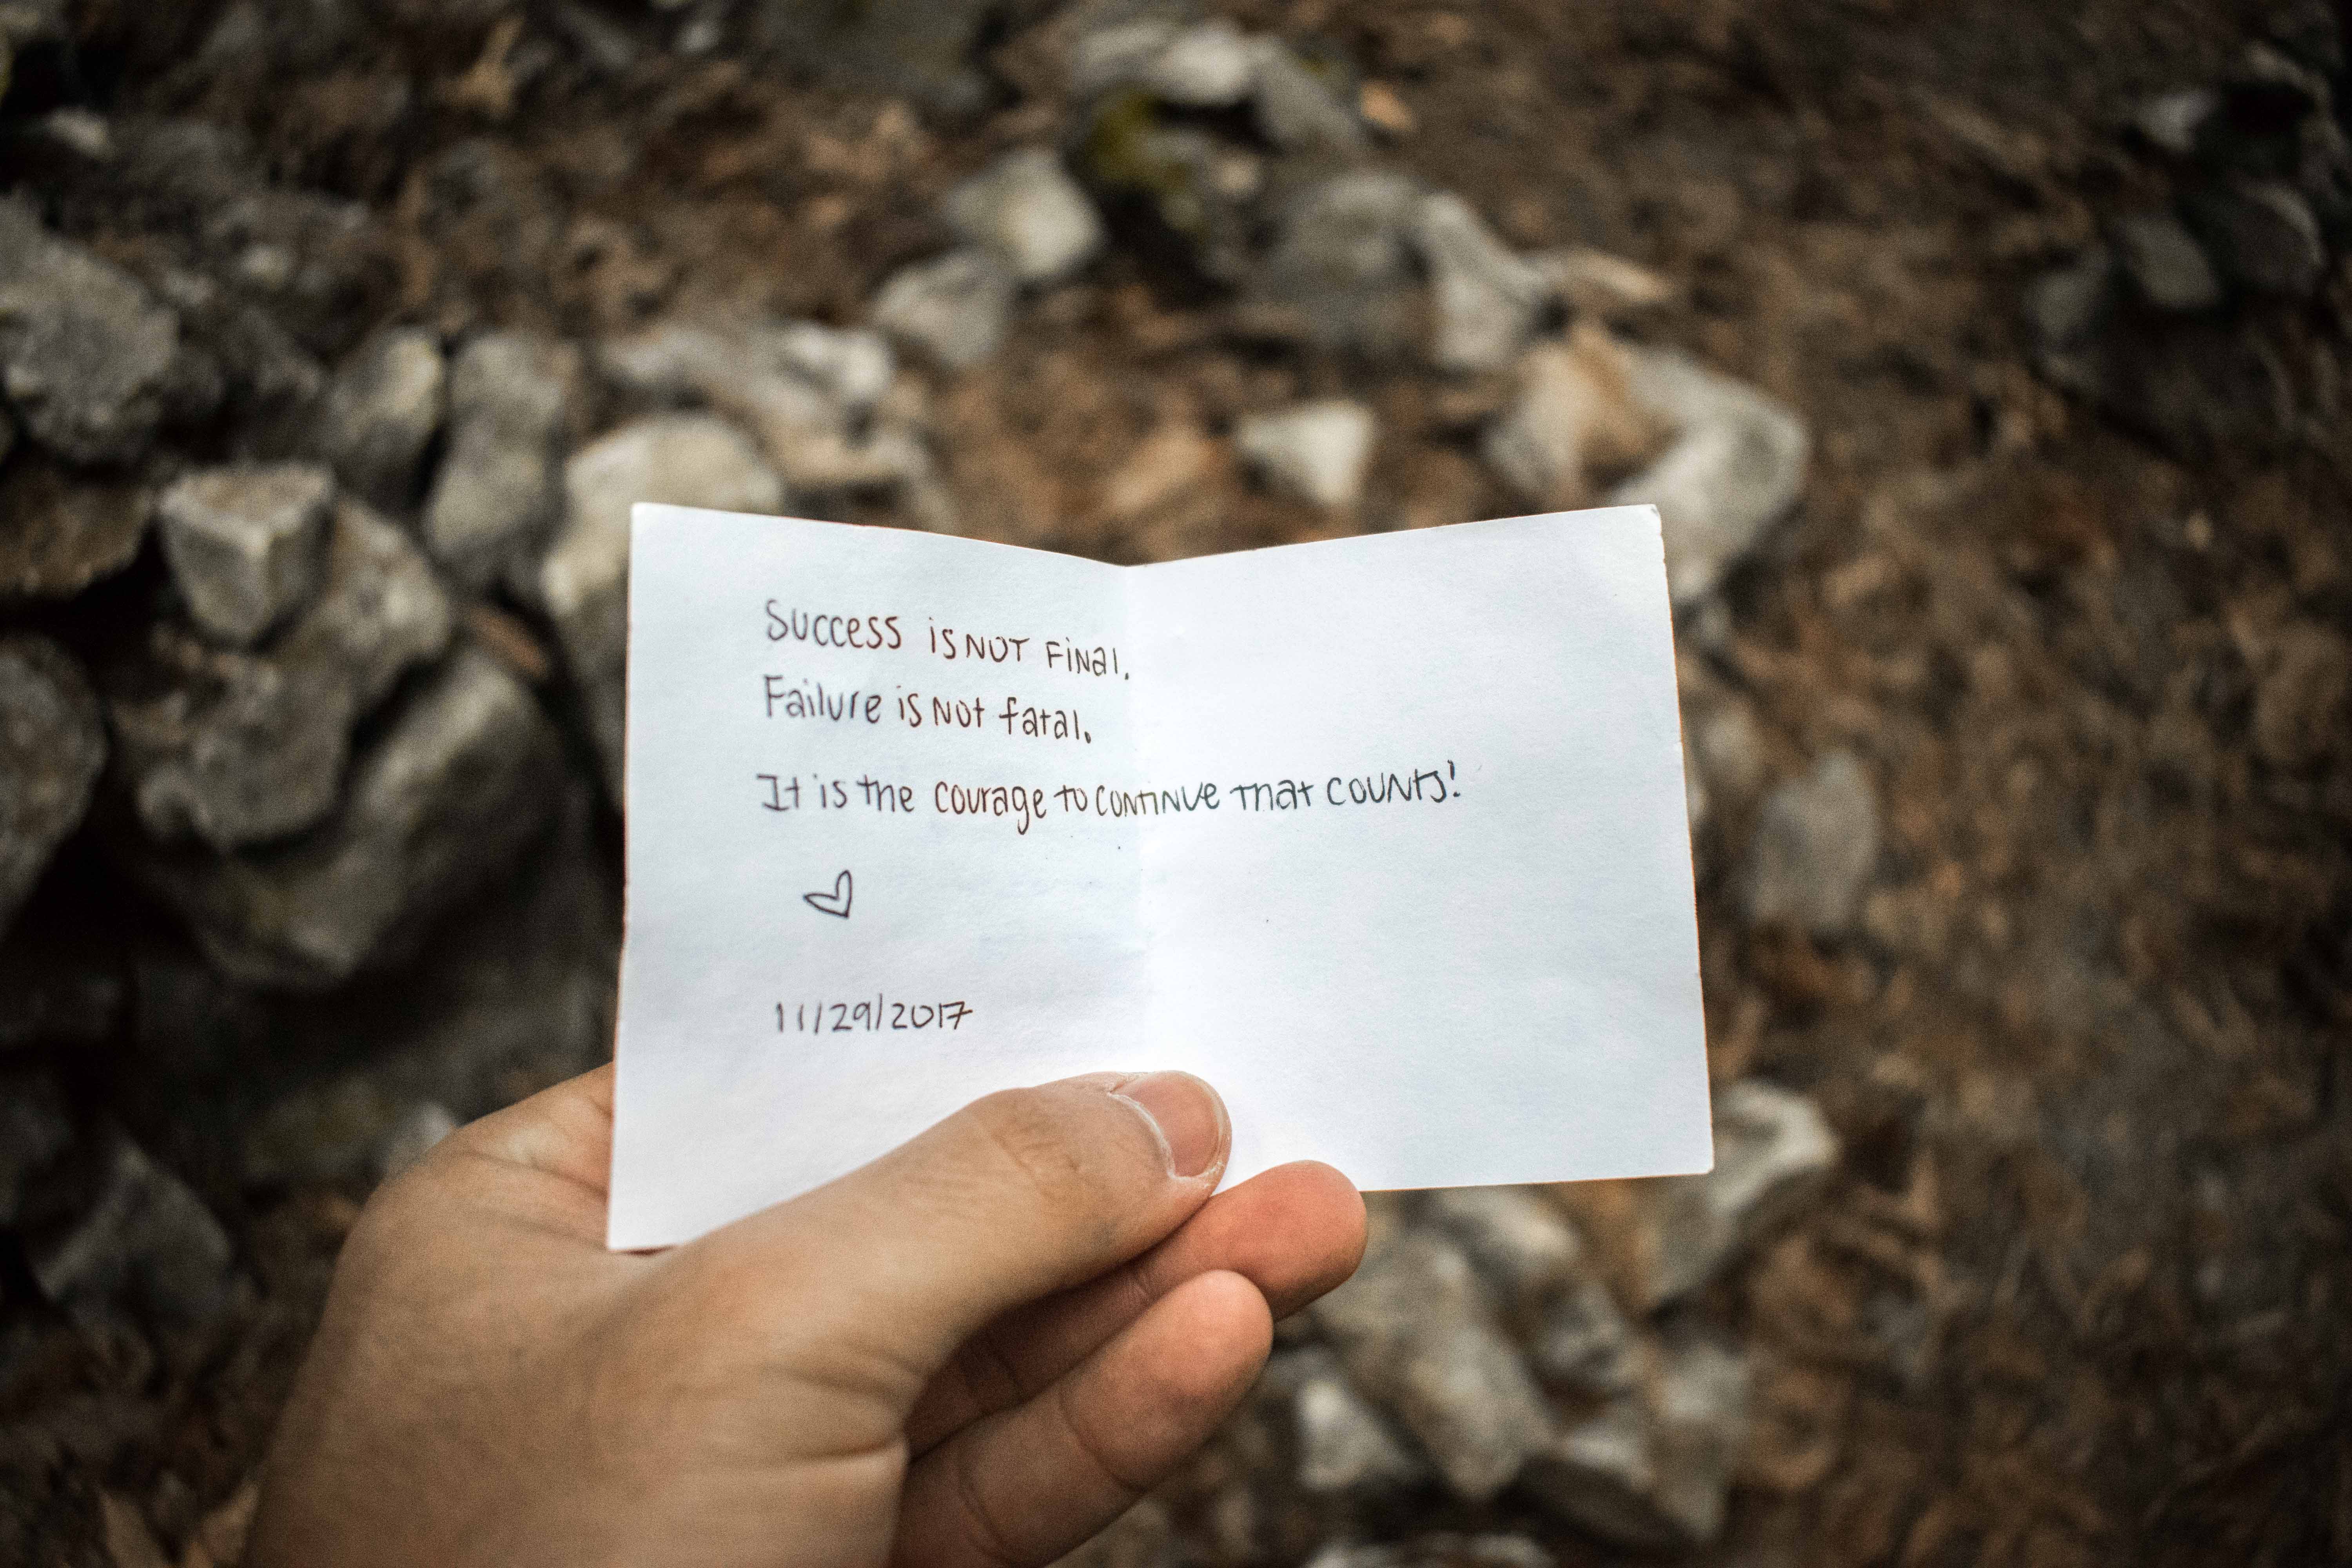 Success is not final.
Failure is not fatal.
It is the courage to continue that counts!
11/29/2017